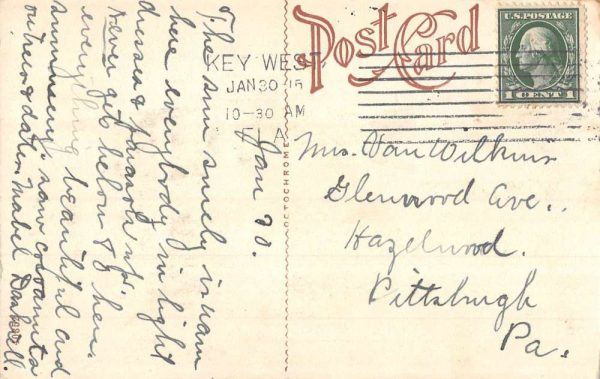 Post Card
U.S. POSTAGE
1 CENT 1
KEY WEST
JAN 30
10-30 AM
FLA
OCTOCHROME
Mrs. Wilkins
Glenwood Ave.
Hazelwood.
Pittsburgh
Pa.
Jan 30.
The sun surely is warm
here everybody in light
dresses & parasols up.
never gets below here.
everything beautiful and
summery, now cocoanuts
on trees & dates Mabel